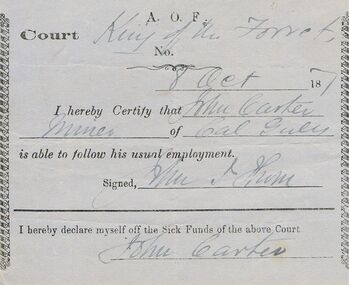 A. O. F.
Court King of the Forrest,
No.
8 Oct 187
I hereby Certify that John Carter
Miner of Gully
is able to follow his usual employment.
Signed,
I hereby declare myself off the Sick Funds of the above Court
John Carter